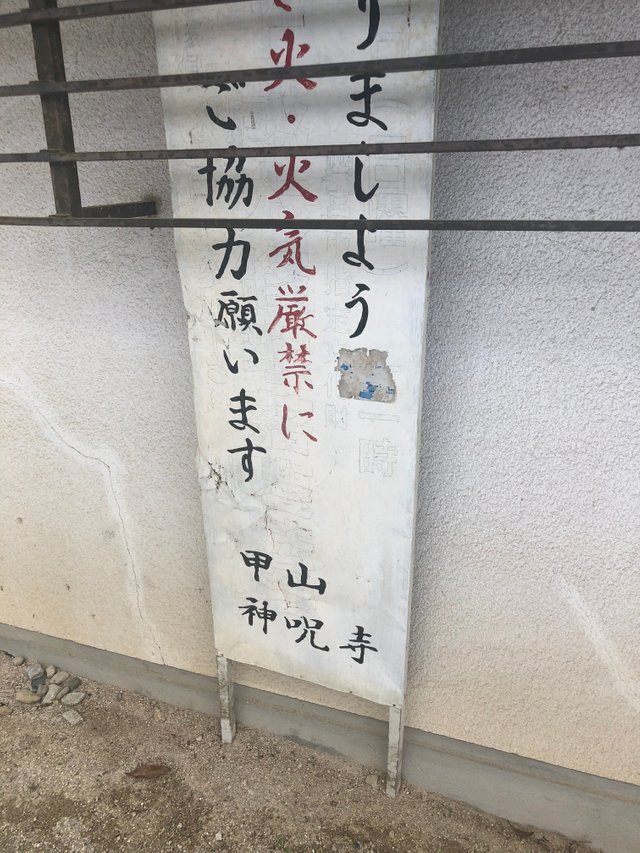 りましょう
火・火気厳禁に
ご協力願います
甲山
神呪寺
一時